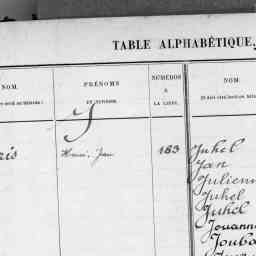 TABLE ALPHABÉTIQUE,
NOM.
PRÉNOMS
NUMÉROS
À
LA LISTE.
NOM.
J
ris Henri, Jean 163
Juhel
Jan
Julienn
Juhel
Juhel
Jouanne
Jouba